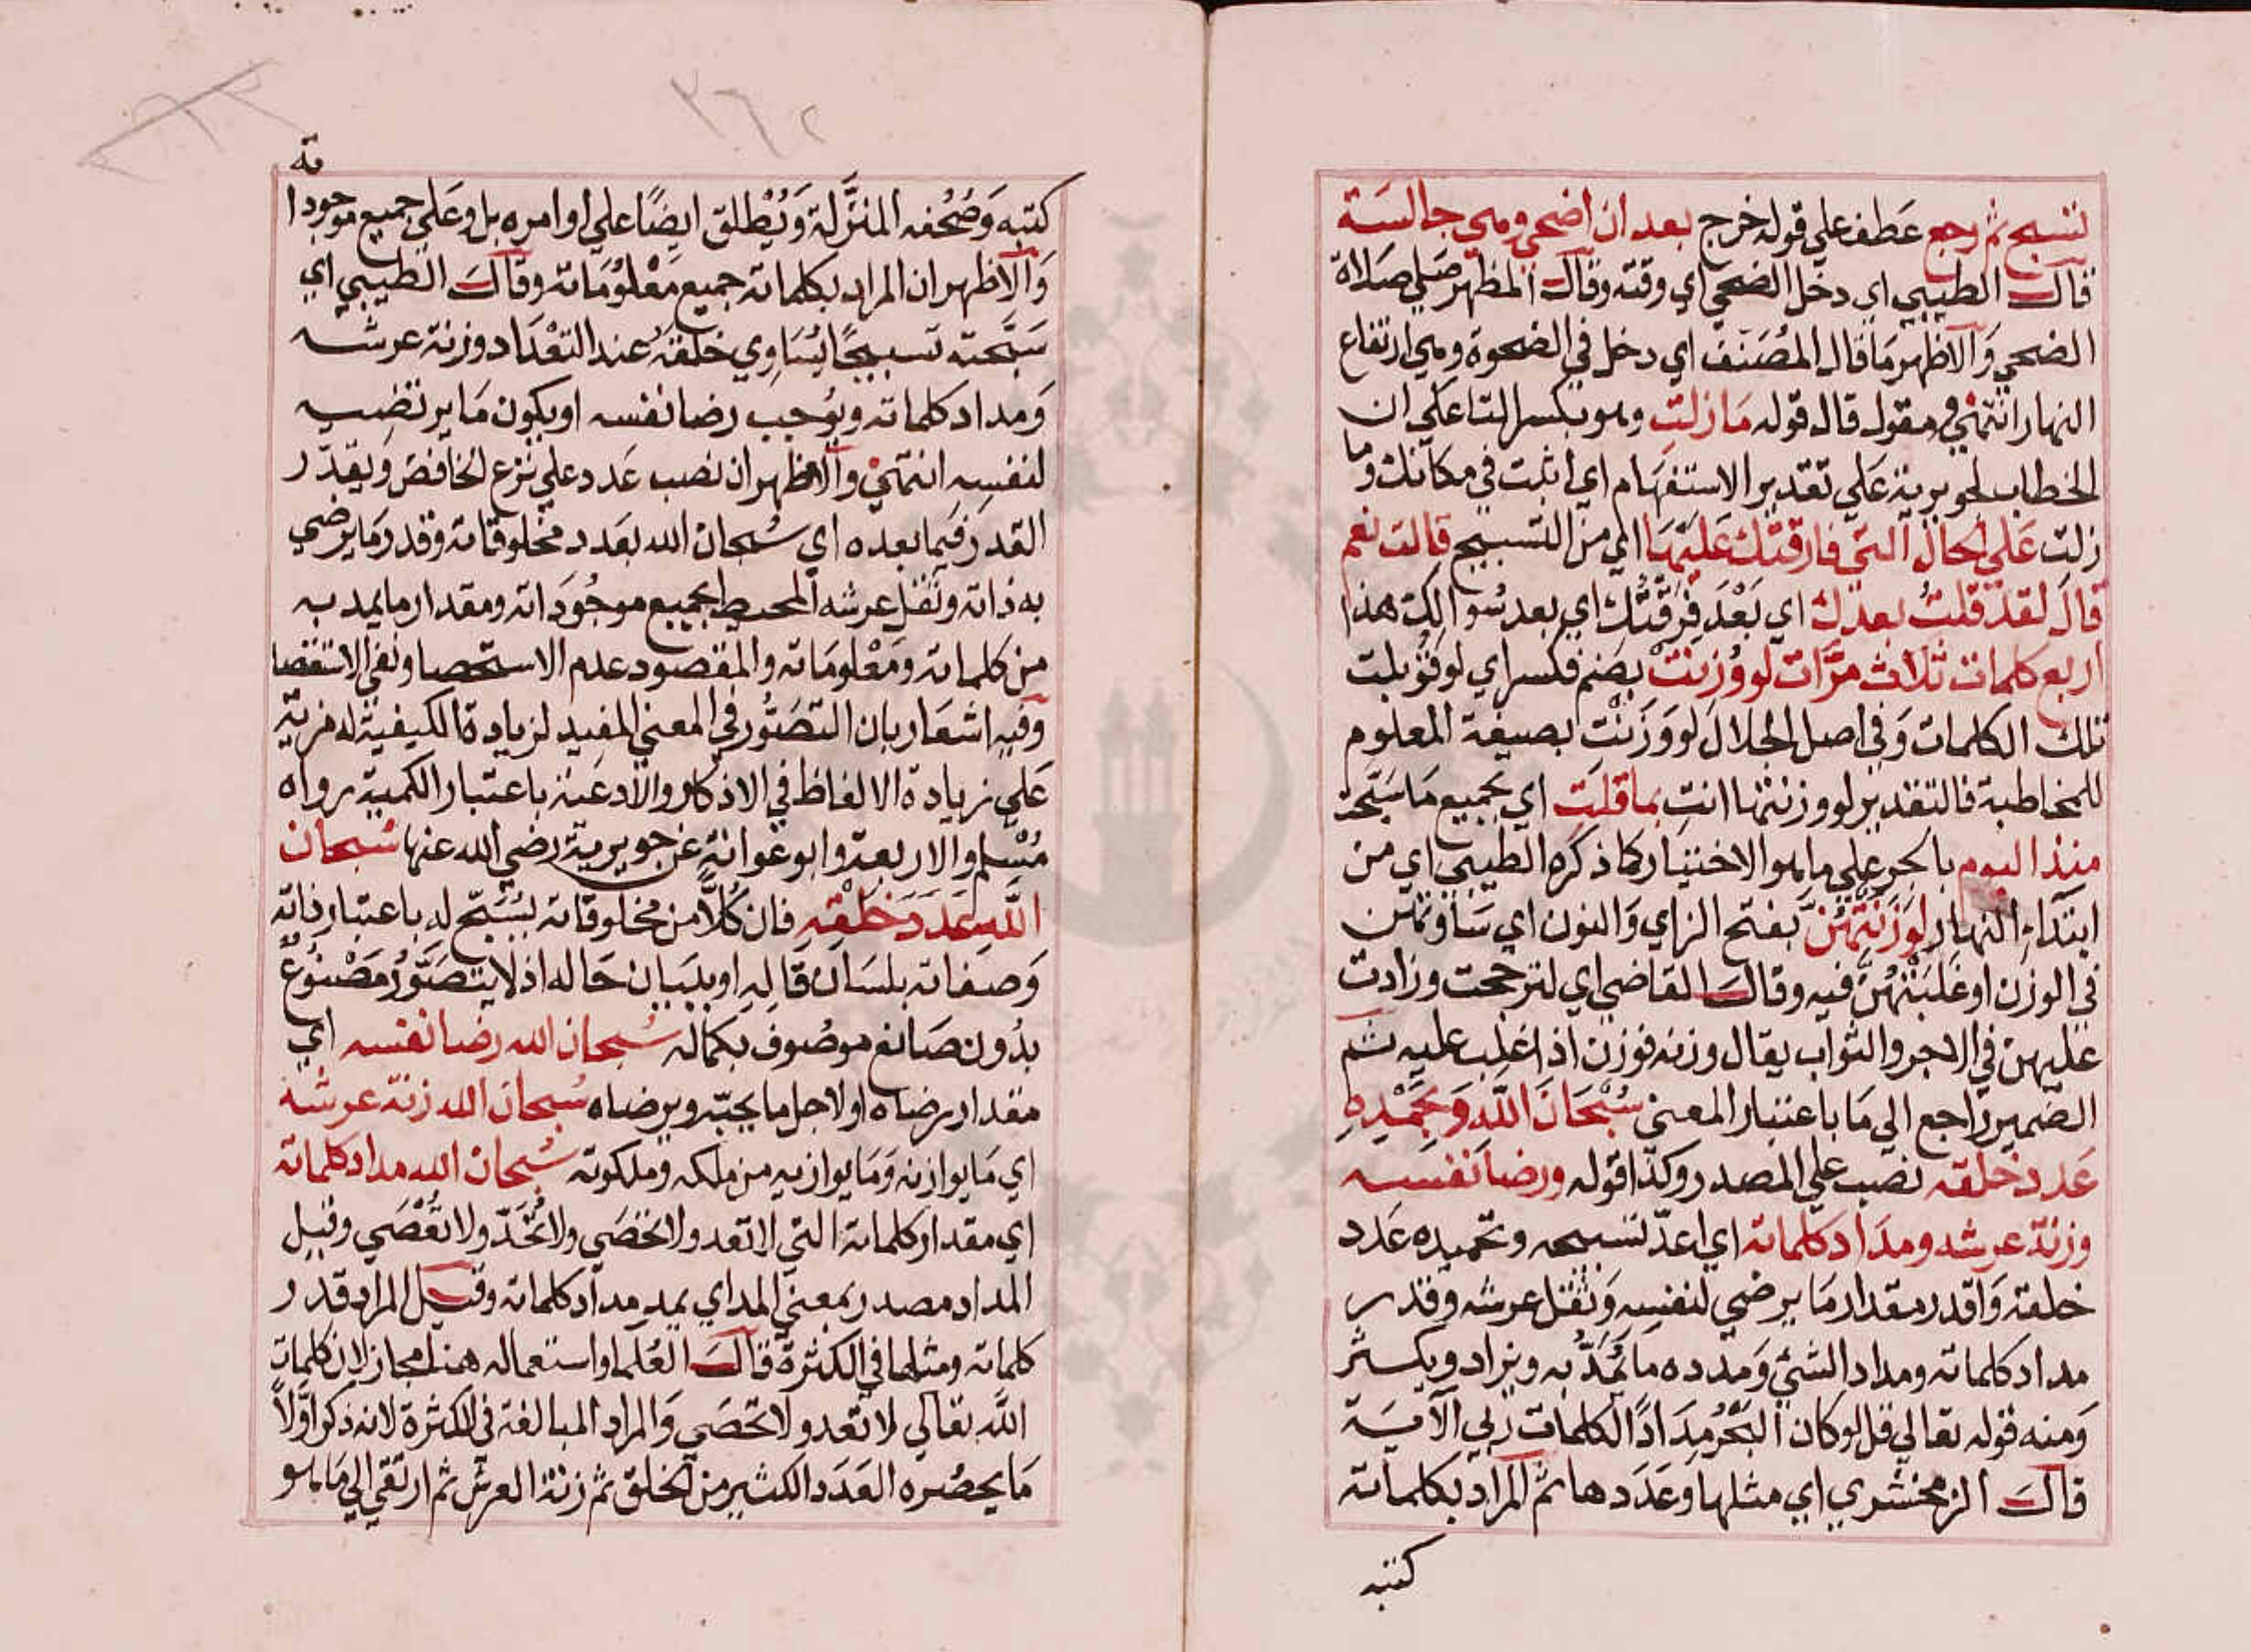 تسبح ثم رجع عطف علي قوله خرج بعد ان اضحي وهي جالسة
قال الطيبي اي دخل الضحي اي وقته وقال المظهر صلي صلاة
الضحي والاظهر ما قال المصنف اي دخل في الضحوة وهي ارتفاع
النهار انتهي ومقول قال قوله ما زلت وهو بكسر التا علي ان
الخطاب لجويرية علي تقدير الاستفهام اي اثبت في مكانك وما
زلت علي الحال التي فارقتك عليها اي من التسبيح قالت نعم
قال لقد قلت بعدك اي بعد فرقتك اي بعد سوالك هذا
اربع كلمات ثلاث مرات لو وزنت بضم فكسر اي لو قوبلت
تلك الكلمات وفي اصل الجلال لو وزنت بصيغة المعلوم
للمخاطبة فالتقدير لو وزنتها انت بما قلت اي بجميع ما سبحت
منذ اليوم بالجر علي ما هو الاختيار كما ذكره الطيبي اي من
ابتداء النهار لوزنتهن بفتح الزاي والنون اي ساوتهن
في الوزن او غلبتهن فيه وقال القاضي اي لترجحت وزادت
عليهن في الاجر والثواب يقال وزنه فوزن اذا غلب عليه ثم
الضمير راجع الي ما باعتبار المعني سُبْحَانَ اللَّهِ وَبِحَمْدِهِ
عدد خلقه نصب علي المصدر وكذا قوله ورضا نفسه
وزنة عرشه ومداد كلماته اي اعدّ تسبيحه وتحميده عدد
خلقه واقدر مقدار ما يرضي لنفسه وثقل عرشه وقدر
مداد كلماته ومداد الشئ ومدده ما يُمَدُّ به ويزاد ويكثر
ومنه قوله تعالي قل لو كان البحر مدادًا لكلمات ربي الآية
قال الزمخشري اي مثلها وعددها ثم المراد بكلماته
كتبه
٣٦٢
ته
كتبه وصحفه المنزَّلة ويُطلق ايضًا علي اوامره بل وعلي جميع موجودا
والاظهر ان المراد بكلماته جميع معلوماته وقال الطيبي اي
سبحته تسبيحًا يساوي خلقه عند التعداد وزنة عرشه
ومداد كلماته ويوجب رضا نفسه او يكون ما يرتضيه
لنفسه انتهي والاظهر ان نصب عدد علي نزع الخافض ويقدّر
القدر فيما بعده اي سُبحان الله بعدد مخلوقاته وقدر ما يرضي
به ذاته وثقل عرشه المحيط بجميع موجوداته ومقدار ما يمد به
من كلماته ومعلوماته والمقصود عدم الاستحصا ونفي الاستقصا
وفيه اشعار بان التصوّر في المعني المفيد لزيادة الكيفية له مزية
علي زيادة الالفاظ في الاذكار والادعية باعتبار الكمية رواه
مُسلم والاربعة وابو عوانة عن جويرية رضي الله عنها سُبحان
اللَّه عَدَدَ خَلْقِهِ فان كُلًّا من مخلوقاته يسبّح له باعتبار ذاته
وصفاته بلسان قاله او ببيان حاله اذ لا يتصوّر مصنوعٌ
بدون صانع موصوف بكماله سُبحان الله رضا نفسه اي
مقدار رضاه او لاجل ما يحبّه ويرضاه سُبحان الله زنة عرشه
اي ما يوازنه وما يوازيه من ملكه وملكوته سُبحان الله مداد كلماته
اي مقدار كلماته التي لا تعد ولا تحصي ولا تُحَدّ ولا تقصي وقيل
المداد مصدر بمعني المد اي يمد مداد كلماته وقيل المراد قدر
كلماته ومثلها في الكثرة قال العُلما واستعماله هنا مجاز لان كلمات
اللَّه تعالي لا تعد ولا تحصي والمراد المبالغة في الكثرة لانه ذكر اوّلاً
ما يحصره العدد الكثير من الخلق ثم زنة العرش ثم ارتقي الي ما هو